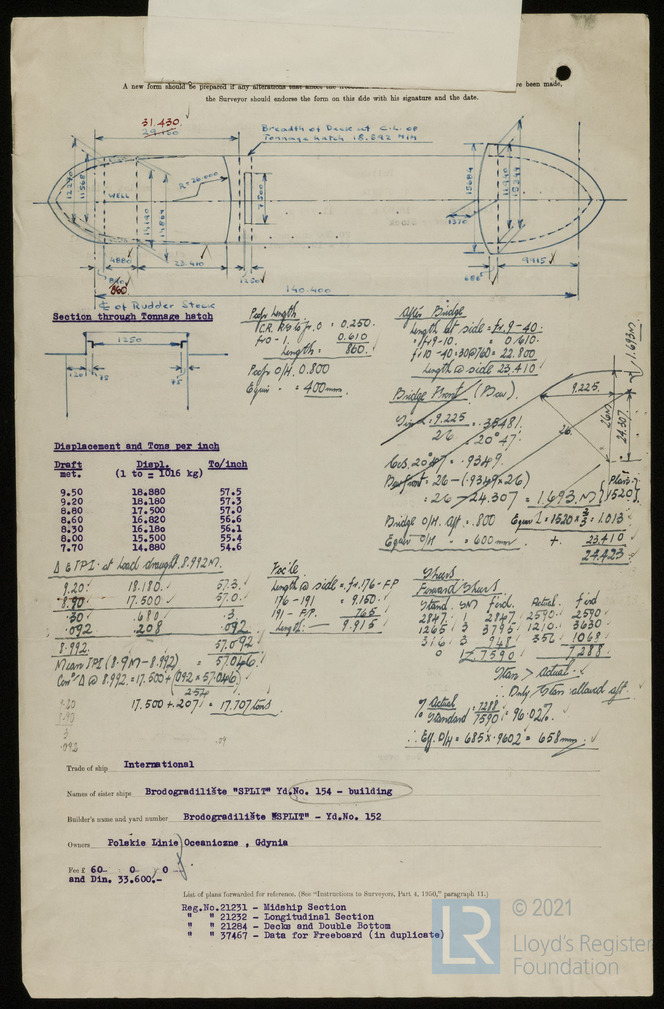 A new form should be prepared if any alterations that affect the
ve been made,
the Surveyor should endorse the form on this side with his signature and the date.
31.430.
39.160
Breadth of Deck at C.L. of
Tonnage hatch 18.892 M/M
WELL
R=26.000
14190
14864
7500
15684
15244
1370
4880
860
23.410
1250
686
9.915
140.400
℄ of Rudder Stock
Section through Tonnage hatch
1250
Poop Length
fr0 - 1. 0.610
Length = 860.
Poop O/H. 0.800
Equiv - = 400mm.
After Bridge
Length at side = fr.9-40.
fr9-10. = 0.610.
fr10-40=30@760= 22.800
Length @ side 23.410
Bridge Front (Bow)
9.225
26
= .35481
= 20°47'
Cos. 20°47' = .9349.
26.
9.225.
26M
24.307.
1.693M
= 26 - 24.307 = 1.693.M
Bridge O/H. aft. .800 Equiv L = 1520 x 2/3 = 1.013
Equiv O/H - = 600mm + 23.410
24.423
Displacement and Tons per inch
Draft Displ. To/inch
met. (1 to = 1016 kg)
9.50 18.880 57.5
9.20 18.180 57.3
8.80 17.500 57.0
8.60 16.820 56.6
8.30 16.180 56.1
8.00 15.500 55.4
7.70 14.880 54.6
Δ & TPI at Load draught 8.992M.
9.20 18.180. 57.3.
8.90 17.500 57.0.
.30 680 .3
.092 208 .092
8.992. 57.092
Mean TPI (8.9M-8.992) = 57.046
Δ @ 8.992 = 17.500 + (.092 x 57.046)
2.54
17.500 + .207 = 17.707 tons
Fo'c'sle
Length @ side = fr.176-FP
176-191 = 9.150.
191 - F.P. 765
Length: 9.915
Sheers
Forward Sheers
Stand. SM f'crd. Actual. f'crd
2847 1 2847 2590 2590
1265 3 3795 1210 3630
316 3 948 356 1068
0 7590 7288
Stan > actual
∴ Only Stan allowed aft.
% Actual / Standard = 7288 / 7590 = 96.02%
∴ Eff. O/H = 685 x .9602 = 658mm
Trade of ship International
Names of sister ships Brodogradilište "SPLIT" Yd.No. 154 - building
Builder's name and yard number Brodogradilište "SPLIT" - Yd.No. 152
Owners Polskie Linie Oceaniczne , Gdynia
Fee £ 60 0 0
and Din. 33.600.-
List of plans forwarded for reference. (See "Instructions to Surveyors, Part 4, 1950," paragraph 11.)
Reg.No.21231 - Midship Section
" " 21232 - Longitudinal Section
" " 21284 - Decks and Double Bottom
" " 37467 - Data for Freeboard (in duplicate)
LR
© 2021
Lloyd's Register
Foundation